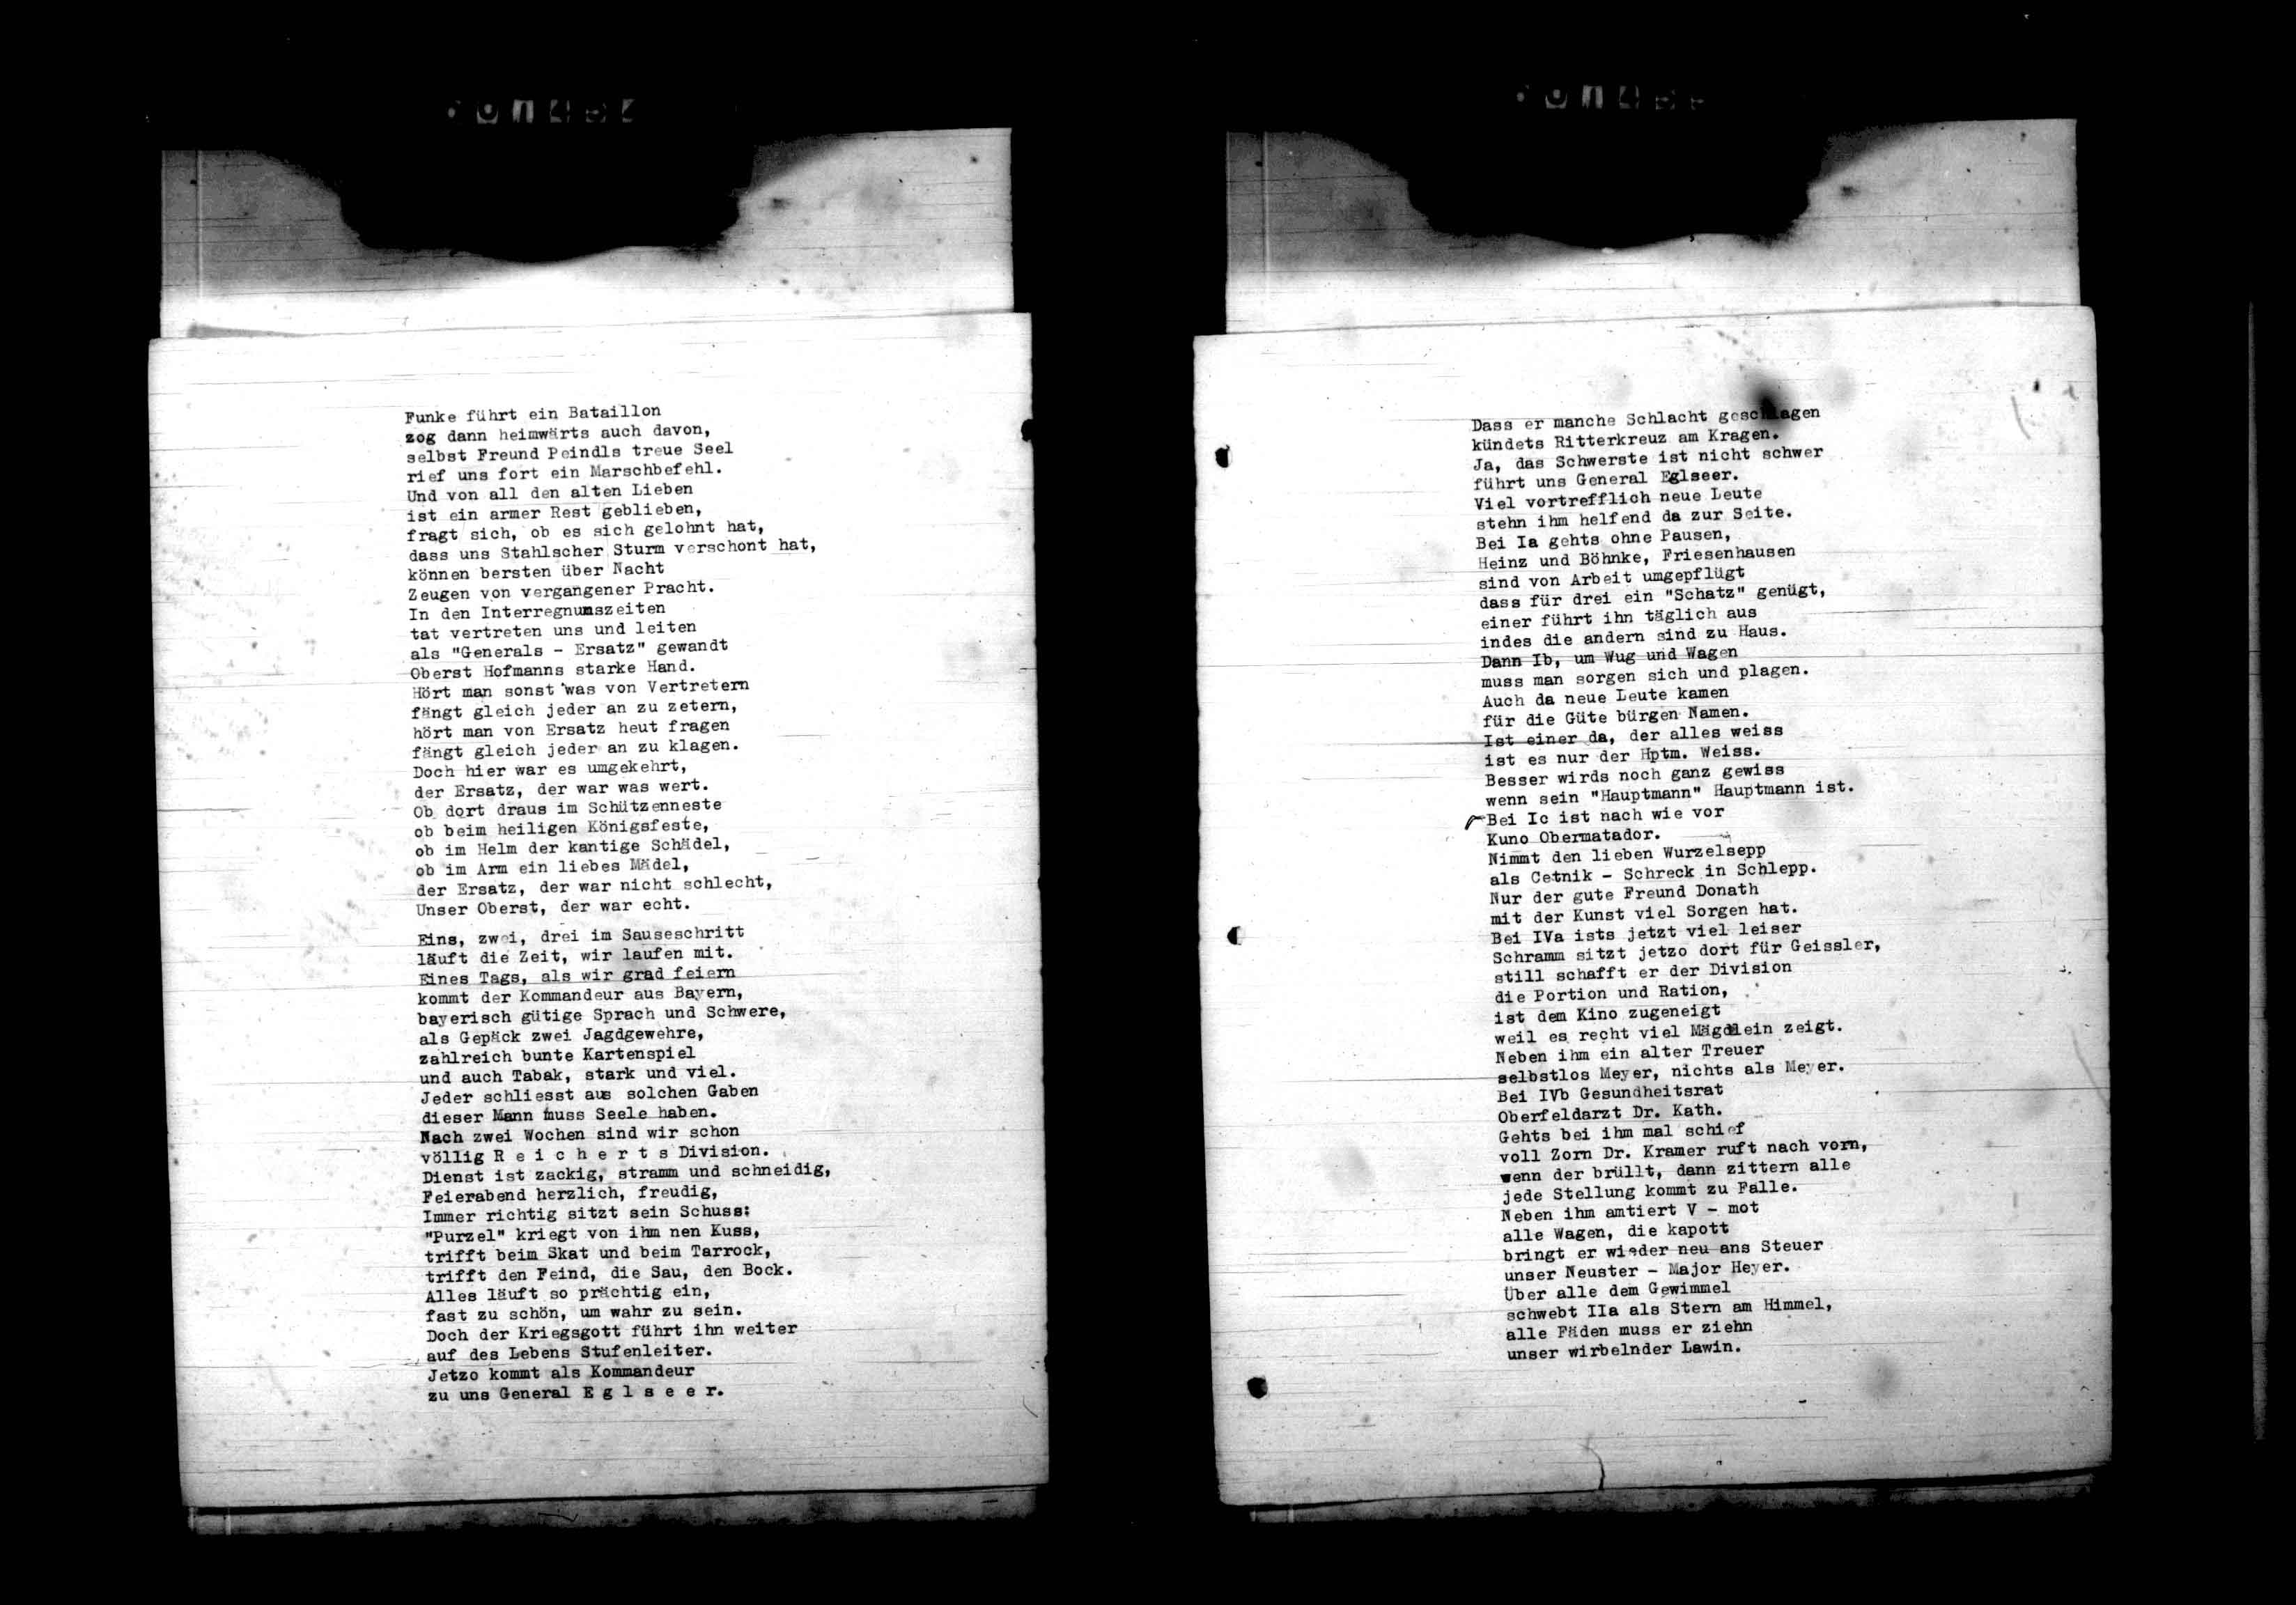 Funke führt ein Bataillon
zog dann heimwärts auch davon,
selbst Freund Peindls treue Seel
rief uns fort ein Marschbefehl.
Und von all den alten Lieben
ist ein armer Rest geblieben,
fragt sich, ob es sich gelohnt hat,
dass uns Stahlscher Sturm verschont hat,
können bersten über Nacht
Zeugen von vergangener Pracht.
In den Interregnumszeiten
tat vertreten uns und leiten
als "Generals - Ersatz" gewandt
Oberst Hofmanns starke Hand.
Hört man sonst was von Vertretern
fängt gleich jeder an zu zetern,
hört man von Ersatz heut fragen
fängt gleich jeder an zu klagen.
Doch hier war es umgekehrt,
der Ersatz, der war was wert.
Ob dort draus im Schützenneste
ob beim heiligen Königsfeste,
ob im Helm der kantige Schädel,
ob im Arm ein liebes Mädel,
der Ersatz, der war nicht schlecht,
Unser Oberst, der war echt.
Eins, zwei, drei im Sauseschritt
läuft die Zeit, wir laufen mit.
Eines Tags, als wir grad feiern
kommt der Kommandeur aus Bayern,
bayerisch gütige Sprach und Schwere,
als Gepäck zwei Jagdgewehre,
zahlreich bunte Kartenspiel
und auch Tabak, stark und viel.
Jeder schliesst aus solchen Gaben
dieser Mann muss Seele haben.
Nach zwei Wochen sind wir schon
völlig R e i c h e r t s Division.
Dienst ist zackig, stramm und schneidig,
Feierabend herzlich, freudig,
Immer richtig sitzt sein Schuss:
"Purzel" kriegt von ihm nen Kuss,
trifft beim Skat und beim Tarrock,
trifft den Feind, die Sau, den Bock.
Alles läuft so prächtig ein,
fast zu schön, um wahr zu sein.
Doch der Kriegsgott führt ihn weiter
auf des Lebens Stufenleiter.
Jetzo kommt als Kommandeur
zu uns General E g l s e e r.
Dass er manche Schlacht geschlagen
kündets Ritterkreuz am Kragen.
Ja, das Schwerste ist nicht schwer
führt uns General Eglseer.
Viel vortrefflich neue Leute
stehn ihm helfend da zur Seite.
Bei Ia gehts ohne Pausen,
Heinz und Böhnke, Friesenhausen
sind von Arbeit umgepflügt
dass für drei ein "Schatz" genügt,
einer führt ihn täglich aus
indes die andern sind zu Haus.
Dann Ib, um Wug und Wagen
muss man sorgen sich und plagen.
Auch da neue Leute kamen
für die Güte bürgen Namen.
Ist einer da, der alles weiss
ist es nur der Hptm. Weiss.
Besser wirds noch ganz gewiss
wenn sein "Hauptmann" Hauptmann ist.
Bei Ic ist nach wie vor
Kuno Obermatador.
Nimmt den lieben Wurzelsepp
als Cetnik - Schreck in Schlepp.
Nur der gute Freund Donath
mit der Kunst viel Sorgen hat.
Bei IVa ists jetzt viel leiser
Schramm sitzt jetzo dort für Geissler,
still schafft er der Division
die Portion und Ration,
ist dem Kino zugeneigt
weil es recht viel Mägdlein zeigt.
Neben ihm ein alter Treuer
selbstlos Meyer, nichts als Meyer.
Bei IVb Gesundheitsrat
Oberfeldarzt Dr. Kath.
Gehts bei ihm mal schief
voll Zorn Dr. Kramer ruft nach vorn,
wenn der brüllt, dann zittern alle
jede Stellung kommt zu Falle.
Neben ihm amtiert V - mot
alle Wagen, die kapott
bringt er wieder neu ans Steuer
unser Neuster - Major Heyer.
Über alle dem Gewimmel
schwebt IIa als Stern am Himmel,
alle Fäden muss er ziehn
unser wirbelnder Lawin.